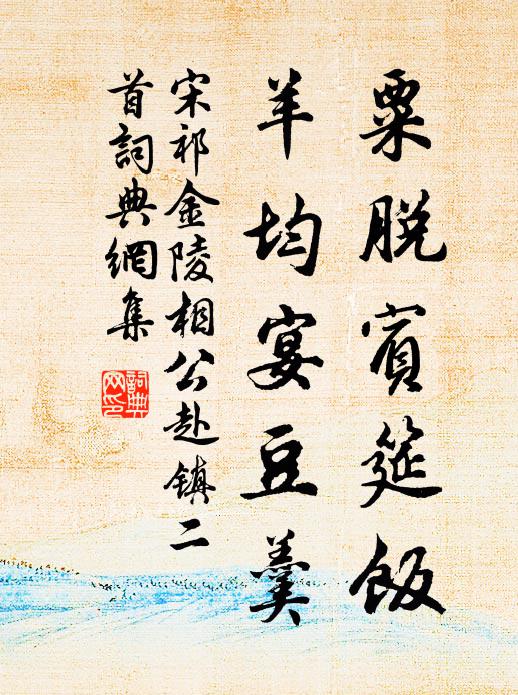 粟脫賓筵飯
羊均宴豆羹
宋祁金陵相公赴鎮二
首詞典網集
詞典
网印